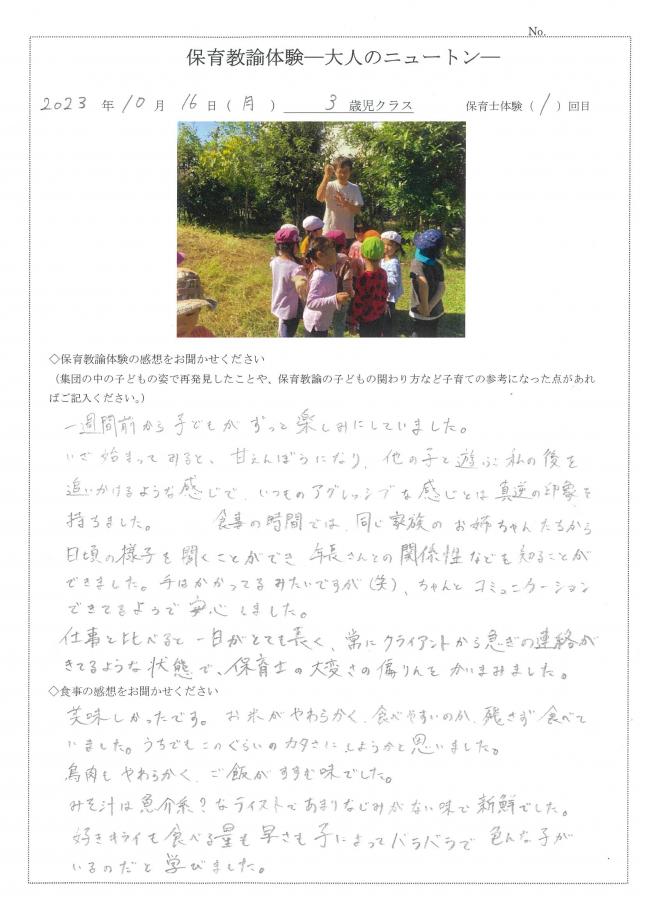 No.
保育教諭体験―大人のニュートン―
2023 年 10 月 16 日(月) 3 歳児クラス 保育士体験(1)回目
◇保育教諭体験の感想をお聞かせください
(集団の中の子どもの姿で再発見したことや、保育教諭の子どもの関わり方など子育ての参考になった点があれ
ばご記入ください。)
一週間前から子どもがずっと楽しみにしていました。
いざ始まってみると、甘えんぼうになり、他の子と遊ぶ私の後を
追いかけるような感じで、いつものアグレッシブな感じとは真逆の印象を
持ちました。 食事の時間では、同じ家族のお姉ちゃんたちから
日頃の様子を聞くことができ、年長さんとの関係性なども知ることが
できました。手はかかってるみたいですが(笑)、ちゃんとコミュニケーション
できてるようで安心しました。
仕事と比べると一日がとても長く、常にクライアントから急ぎの連絡が
きてるような状態で、保育士の大変さの偏りんをかいまみました。
◇食事の感想をお聞かせください
美味しかったです。お米がやわらかく、食べやすいのか、残さず食べて
いました。うちでもこのぐらいのカタさにしようかと思いました。
鳥肉もやわらかく、ご飯がすすむ味でした。
みそ汁は魚介系?なテイストであまりなじみがない味で新鮮でした。
好きキライも食べる量も早さも子によってバラバラで色んな子が
いるのだと学びました。